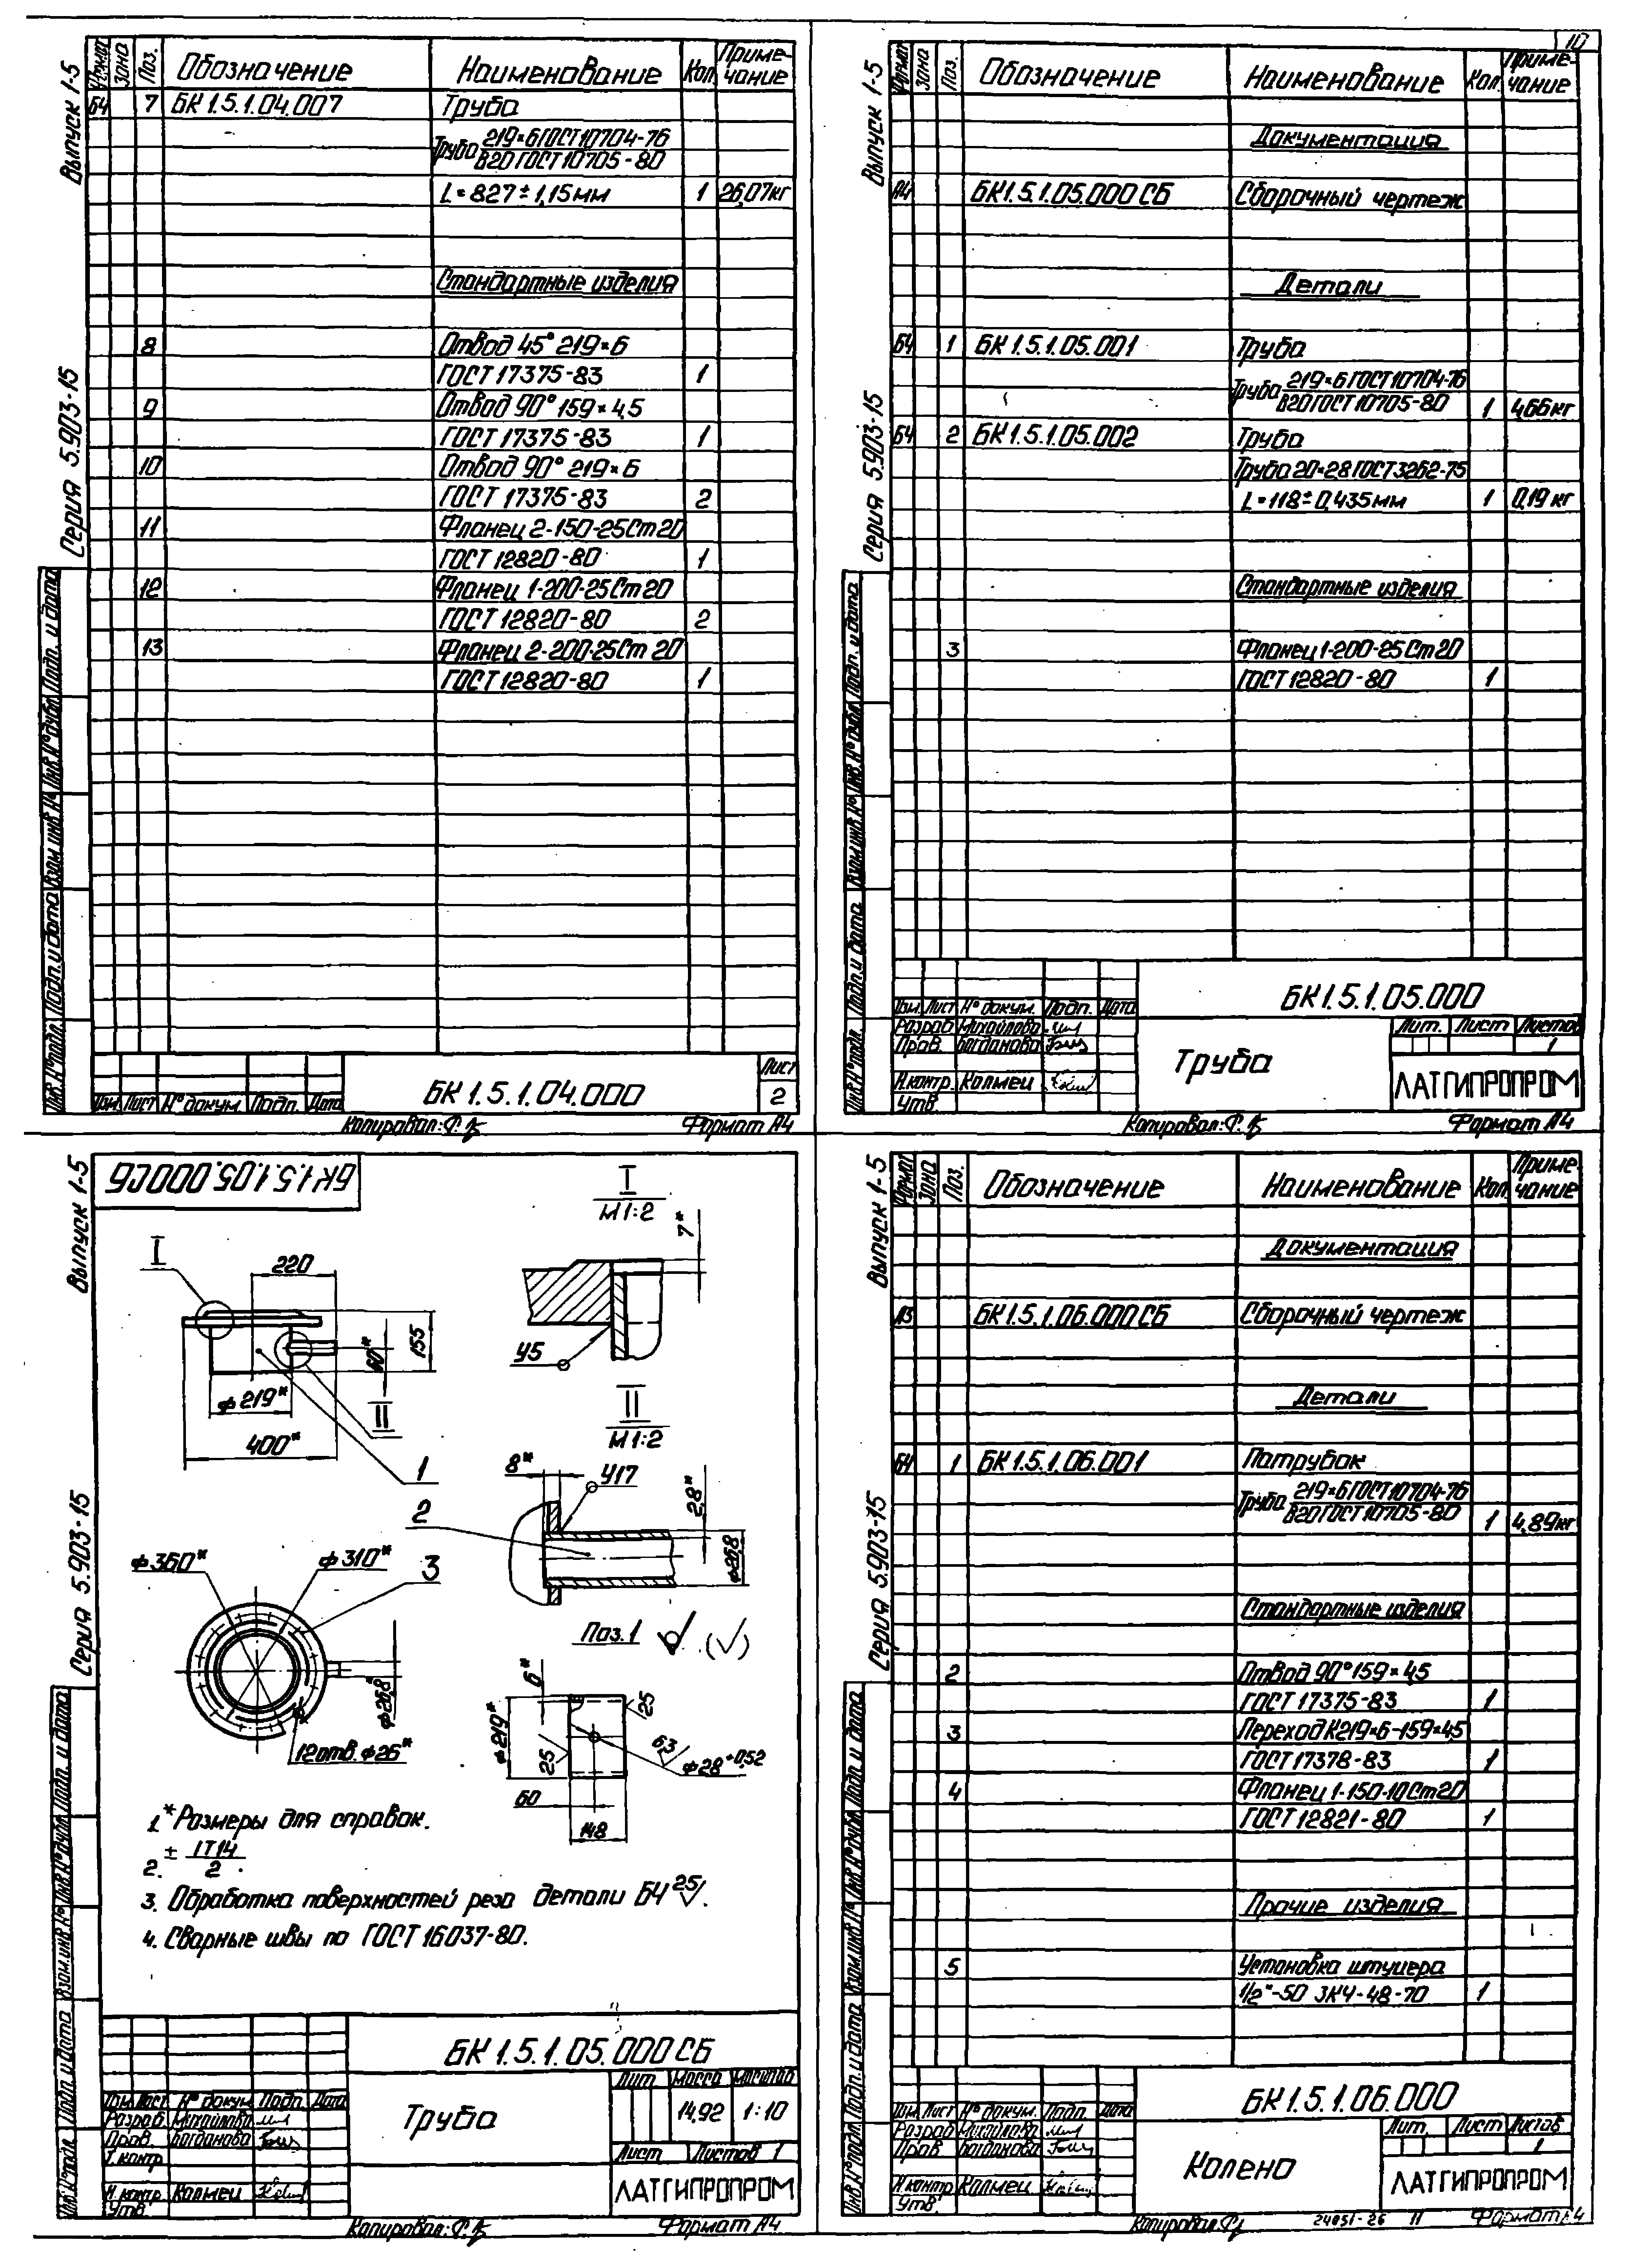 Выпуск 1-5
Серия 5.903-15
Формат Зона Поз. Обозначение Наименование Кол. Примечание
БЧ 7 БК 1.5.1.04.007 Труба
Труба 219×6 ГОСТ 10704-76
В20 ГОСТ 10705-80
L=827±1,15мм 1 26,07кг
Стандартные изделия
8 Отвод 45° 219×6
ГОСТ 17375-83 1
9 Отвод 90° 159×4,5
ГОСТ 17375-83 1
10 Отвод 90° 219×6
ГОСТ 17375-83 2
11 Фланец 2-150-25 Ст 20
ГОСТ 12820-80 1
12 Фланец 1-200-25 Ст 20
ГОСТ 12820-80 2
13 Фланец 2-200-25 Ст 20
ГОСТ 12820-80 1
Инв.№подл. Подп. и дата Взам.инв.№ Инв.№дубл. Подп. и дата
Изм. Лист № докум. Подп. Дата
БК 1.5.1.04.000
Лист
2
Копировал:
Формат А4
10
Выпуск 1-5
Серия 5.903-15
Формат Зона Поз. Обозначение Наименование Кол. Примечание
Документация
А4 БК 1.5.1.05.000 СБ Сборочный чертеж
Детали
БЧ 1 БК 1.5.1.05.001 Труба
Труба 219×6 ГОСТ 10704-76
В20 ГОСТ 10705-80 1 4,66кг
БЧ 2 БК 1.5.1.05.002 Труба
Труба 20×2,8 ГОСТ 3262-75
L=118±0,435мм 1 0,19 кг
Стандартные изделия
3 Фланец 1-200-25 Ст 20
ГОСТ 12820-80 1
Инв.№подл. Подп. и дата Взам.инв.№ Инв.№дубл. Подп. и дата
БК 1.5.1.05.000
Изм. Лист № докум. Подп. Дата
Разраб. Михайлова
Пров. Богданова
Н.контр. Колмец
Утв.
Труба
Лит. Лист Листов
1
ЛАТГИПРОПРОМ
Копировал:
Формат А4
Выпуск 1-5
Серия 5.903-15
БК 1.5.1.05.000СБ
I
220
155
60*
ф219*
II
400*
1
I
М1:2
7*
У5
II
М1:2
8*
У17
2,8*
2
ф26,8
ф360*
ф310*
3
ф26,8*
12 отв. ф26*
Поз.1
6*
25
ф219*
25
6,3
ф28+0,52
60
148
1. *Размеры для справок.
2. ± IT14/2.
3. Обработка поверхностей реза детали БЧ 25.
4. Сварные швы по ГОСТ 16037-80.
Инв.№подл. Подп. и дата Взам.инв.№ Инв.№дубл. Подп. и дата
БК 1.5.1.05.000 СБ
Изм. Лист № докум. Подп. Дата
Разраб. Михайлова
Пров. Богданова
Т.контр.
Н.контр. Колмец
Утв.
Труба
Лит. Масса Масштаб
14,92 1:10
Лист Листов 1
ЛАТГИПРОПРОМ
Копировал:
Формат А4
Выпуск 1-5
Серия 5.903-15
Формат Зона Поз. Обозначение Наименование Кол. Примечание
Документация
А3 БК 1.5.1.06.000СБ Сборочный чертеж
Детали
БЧ 1 БК 1.5.1.06.001 Патрубок
Труба 219×6 ГОСТ 10704-76
В20 ГОСТ 10705-80 1 4,89кг
Стандартные изделия
2 Отвод 90° 159×4,5
ГОСТ 17375-83 1
3 Переход К219×6-159×4,5
ГОСТ 17378-83 1
4 Фланец 1-150-10 Ст 20
ГОСТ 12821-80 1
Прочие изделия
5 Установка штуцера
1/2"-50 ЗКЧ-48-70 1
Инв.№подл. Подп. и дата Взам.инв.№ Инв.№дубл. Подп. и дата
БК 1.5.1.06.000
Изм. Лист № докум. Подп. Дата
Разраб. Михайлова
Пров. Богданова
Н.контр. Колмец
Утв.
Колено
Лит. Лист Листов
1
ЛАТГИПРОПРОМ
Копировал
24051-26 11
Формат А4